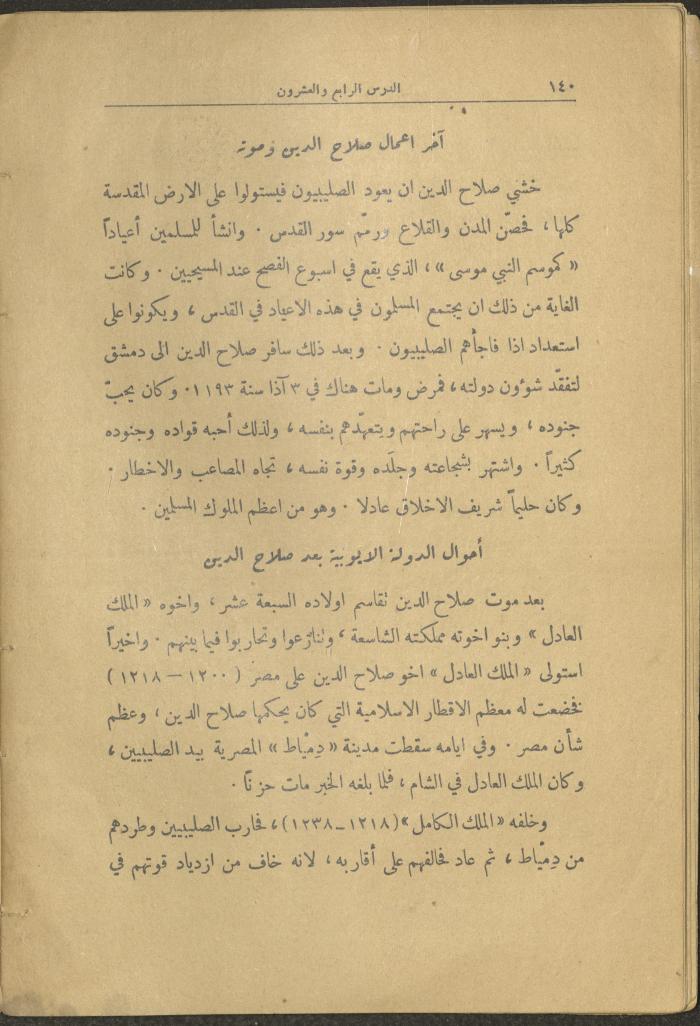 ١٤٠
الدرس الرابع والعشرون
آخر اعمال صلاح الدين وموته
خشي صلاح الدين ان يعود الصليبيون فيستولوا على الارض المقدسة
كلها ، فحصّن المدن والقلاع ورمّم سور القدس . وانشأ للمسلمين أعياداً
« كموسم النبي موسى » ، الذي يقع في اسبوع الفصح عند المسيحيين . وكانت
الغاية من ذلك ان يجتمع المسلمون في هذه الاعياد في القدس ، ويكونوا على
استعداد اذا فاجأهم الصليبيون . وبعد ذلك سافر صلاح الدين الى دمشق
لتفقّد شوؤن دولته ، فمرض ومات هناك في ٣ آذا سنة ١١٩٣ . وكان يحبّ
جنوده ، ويسهر على راحتهم ويتعهّدهم بنفسه ، ولذلك أحبه قواده وجنوده
كثيراً . واشتهر بشجاعته وجلَده وقوة نفسه ، تجاه المصاعب والاخطار .
وكان حليماً شريف الاخلاق عادلا . وهو من اعظم الملوك المسلمين .
أحوال الدولة الايوبية بعد صلاح الدين
بعد موت صلاح الدين تقاسم اولاده السبعة عشر ، واخوه « الملك
العادل » وبنو اخوته مملكته الشاسعة ، وتنازعوا وتحاربوا فيما بينهم . واخيراً
استولى « الملك العادل » اخو صلاح الدين على مصر ( ١٢٠٠ — ١٢١٨ )
فخضعت له معظم الاقطار الاسلامية التي كان يحكمها صلاح الدين ، وعظم
شأن مصر . وفي ايامه سقطت مدينة « دِمْياط » المصرية بيد الصليبيين ،
وكان الملك العادل في الشام ، فلما بلغه الخبر مات حزناً .
وخلفه « الملك الكامل » (١٢١٨ - ١٢٣٨) ، فحارب الصليبيين وطردهم
من دِمْياط ، ثم عاد فحالفهم على أقاربه ، لانه خاف من ازدياد قوتهم في